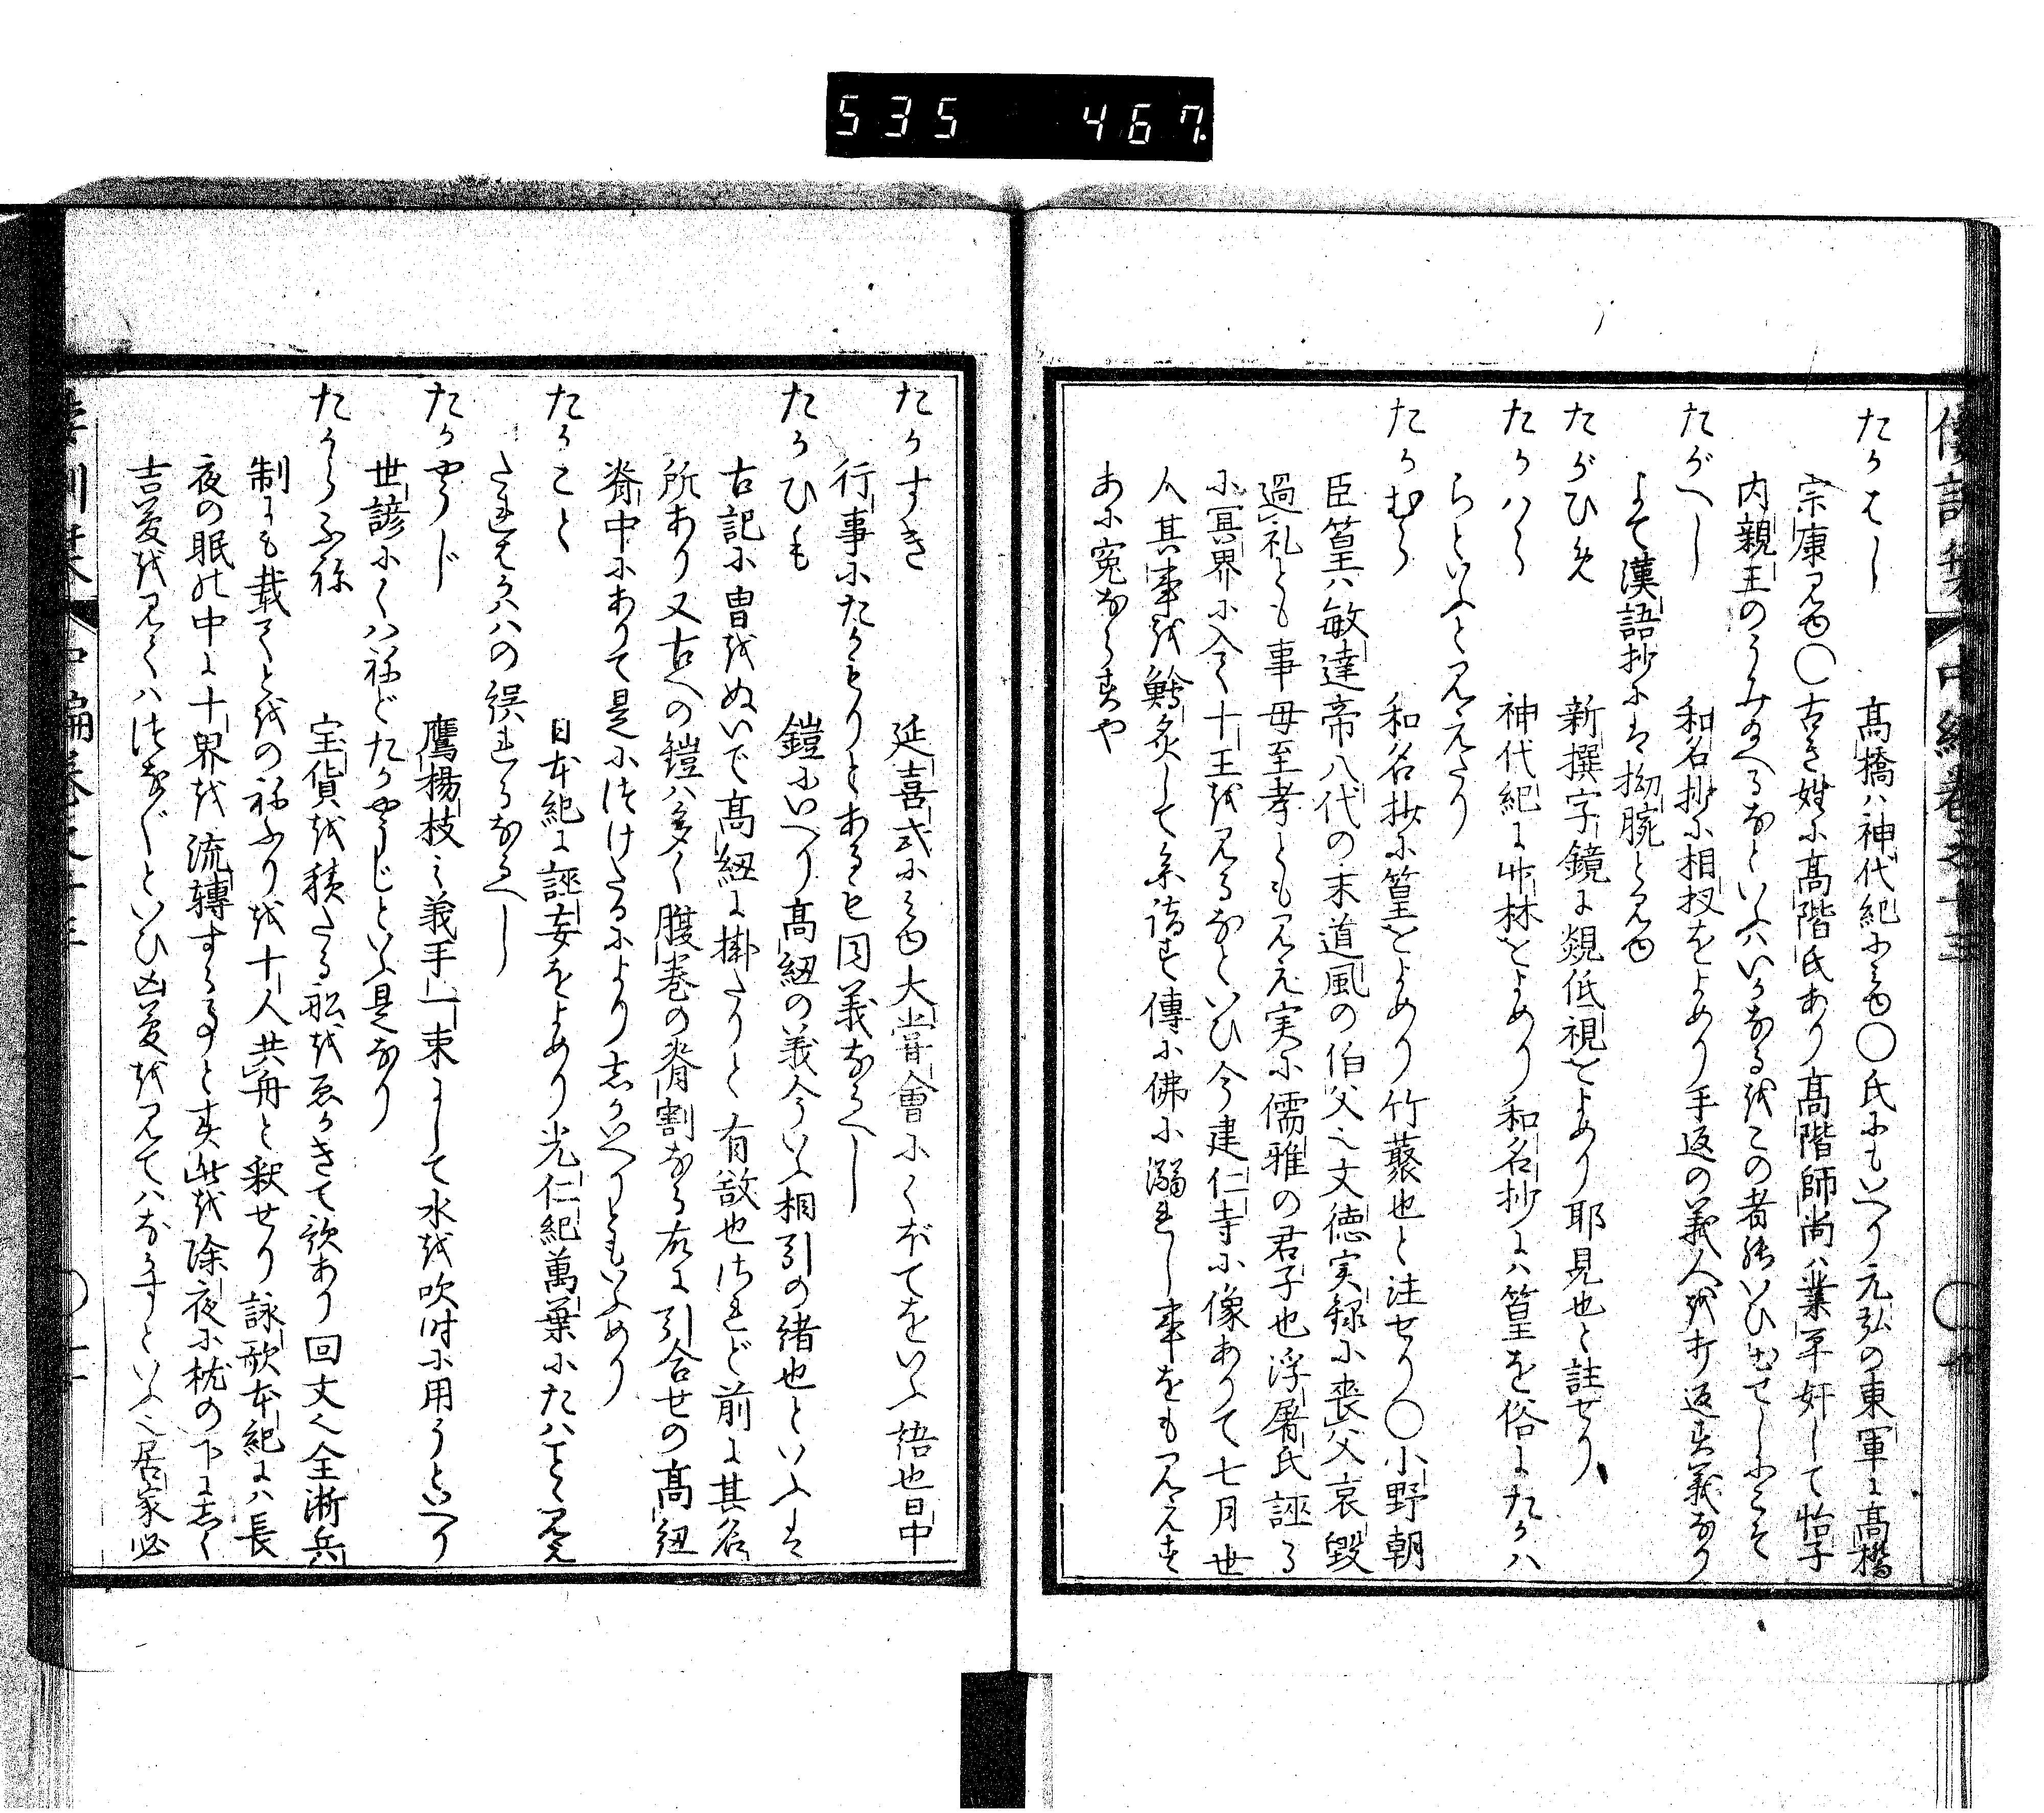 535 467
倭訓栞 中編巻之十三 〇九
たかはし 高橋ハ神代紀にみゆ〇氏にもいへり元弘の東軍に高橋
宗康見ゆ〇古き姓に高階氏あり高階師尚ハ業平奸して恬子
内親王のうみ給へるなといふハいかなるをこの者歟いひ出せしにこそ
たがへし 和名抄に相扠をよめり手返の義人を打返す義なり
よて漢語抄にハ拗腕と見ゆ
たがひめ 新撰字鏡に覢低視をよめり耶見也と註せり
たかハら 神代紀に竹林をよめり和名抄にハ篁を俗にたかハ
らといふと見えたり
たかむら 和名抄に篁をよめり竹藂也と注せり〇小野朝
臣篁ハ敏達帝八代の末道風の伯父也文徳実録に喪父哀毀
過礼とも事母至孝とも見え実に儒雅の君子也浮屠氏誣る
に冥界に入て十王を見るなといひ今建仁寺に像ありて七月世
人其事を鱃炙して参詣す傳に佛に溺れし事をも見えす
あに寃ならすや
たかすき 延喜式にみゆ大甞會にくぼてをいふ語也日中
行事にたかもりとあるも同義なるへし
たかひも 鎧にいへり高紐の義今いふ相引の緒也といふハ
古記に冑をぬいで高紐に掛たりと有故也されど前に其名
所あり又古への鎧ハ多く腹巻の脊割なる故に引合せの高紐
脊中にありて是につけたるによりしかいへりともいふめり
たかこと 日本紀に誣妄をよめり光仁紀萬葉にたハこと見え
たれはかハハの誤れるなるへし
たかやうじ 鷹楊枝也義手一束にして水を吹時に用うといへり
世諺にくハねどたかやうじといふ是なり
たからふね 宝貨を積たる船をゑかきて歌あり回文也全淅兵
制にも載てとをの祢ふりを十人共舟と釈せり詠歌本紀にハ長
夜の眠の中に十界を流轉するることとす此を除夜に枕の下にしく
吉夢を見てハつなぐといひ凶夢を見てハながすといふ也居家必
倭訓栞 中編巻之十三 〇十